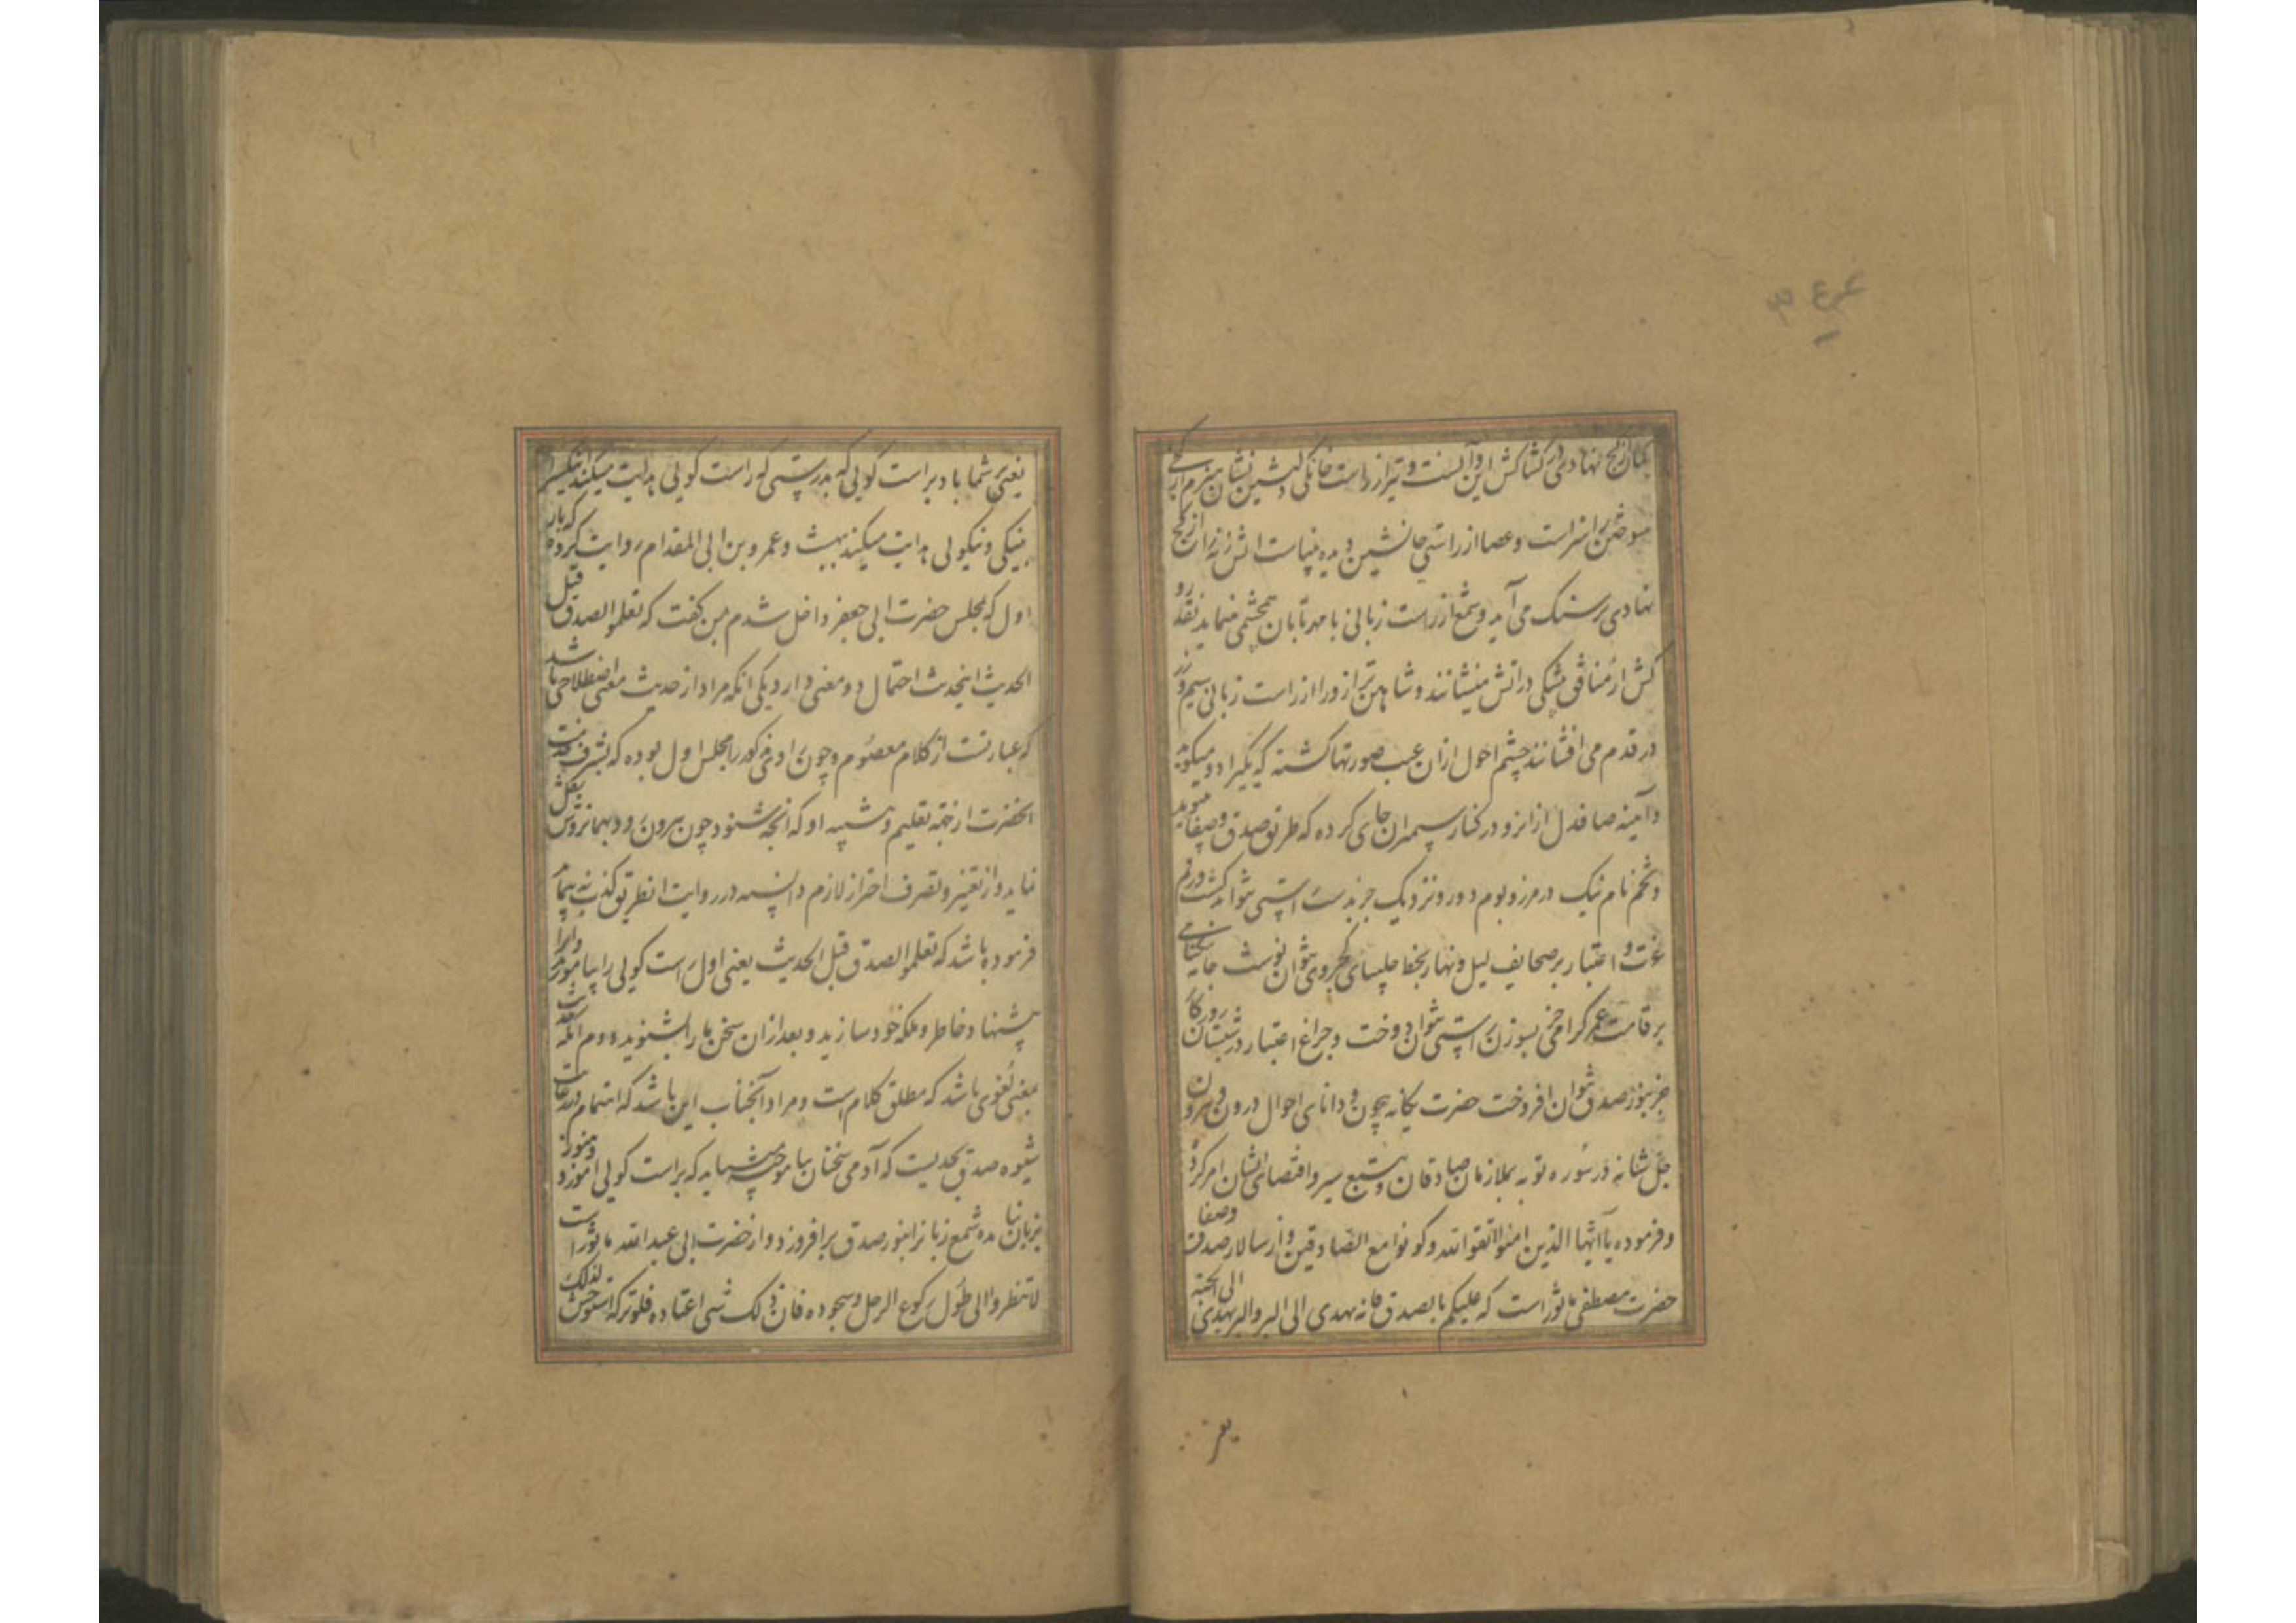 کمان از کج نهادی در کشاکش این و آنست و تیر از راست خانگی دلنشین نشان هیزم از کجی
سوختن را سزاست و عصا از راستی جانشین دیده بیناست آتش زنه را از کج
نهادی بر سنگ می آید و شمع از راست زبانی با مهر تابان همچشمی مینماید نقد رو
کش از منافق پیشگی در آتش مینشانند و شاهین ترازو را از راست زبانی سیم و زر
در قدم می افشانند چشم احول از آن عیب صورتها گشته که یکی را دو میگوید
و آینه صافدل از آنرو در کنار سیمبران جای کرده که طریق صدق و صفا میپوید
و تخم نام نیک در مرز و بوم دور و نزدیک جز بدست راستی نتواند کشت و رقم
عزت و اعتبار بر صحایف لیل و نهار بخط چلیپای کجروی نتوان نوشت جامه نیکنامی
بر قامت عمر گرامی جز بسوزن راستی نتوان دوخت و چراغ اعتبار در شبستان روزگار
جز بنور صدق نتوان افروخت حضرت یگانه بیچون و دانای احوال درون و بیرون
جل شانه در سوره توبه بملازمان صادقان و تتبع سیر و اقتصای ایشان امر کرده
و فرموده یا ایها الذین امنوا اتقوا الله و کونوا مع الصادقین و از سالار صدق و صفا
حضرت مصطفی ماثور است که علیکم بالصدق فانه یهدی الی البر و البر یهدی الی الجنة
یعنی
یعنی بر شما باد براست گویی که بدرستی که راست گویی هدایت میکند
بنیکی و نیکویی هدایت میکند ببهشت و عمرو بن ابی المقدام روایت کرده که بار
اول که بمجلس حضرت ابی جعفر داخل شدم بمن گفت که تعلموا الصدق قبل
الحدیث اینحدیث احتمال دو معنی دارد یکی آنکه مراد از حدیث معنی اصطلاحی باشد
که عبارتست از کلام معصوم و چون راوی مذکور را مجلس اول بوده که بشرف خدمت
آنحضرت از جهة تعلیم و تنبیه او که آنچه شنود چون بیرون رود بهمانروش نقل
نماید و از تغییر و تصرف احتراز لازم دانسته در روایت آن طریق کذب نه پیماید
فرموده باشد که تعلموا الصدق قبل الحدیث یعنی اول راست گویی را بیاموزید و آنرا
پیشنهاد خاطر و ملکه خود سازید و بعد از آن سخن ما را بشنوید دوم آنکه
معنی لغوی باشد که مطلق کلام است و مراد آنجناب این باشد که اهتمام در رعایت
شیوه صدق بحدیست که آدمی سخنان نیاموخته میباید که براست گویی آموزد و هنوز
بزبان نیامده شمع زبانرا بنور صدق برافروزد و از حضرت ابی عبد الله ماثور است
لا تنظروا الی طول رکوع الرجل و سجوده فان ذلک شی اعتاده فلو ترکه استوحش لذلک